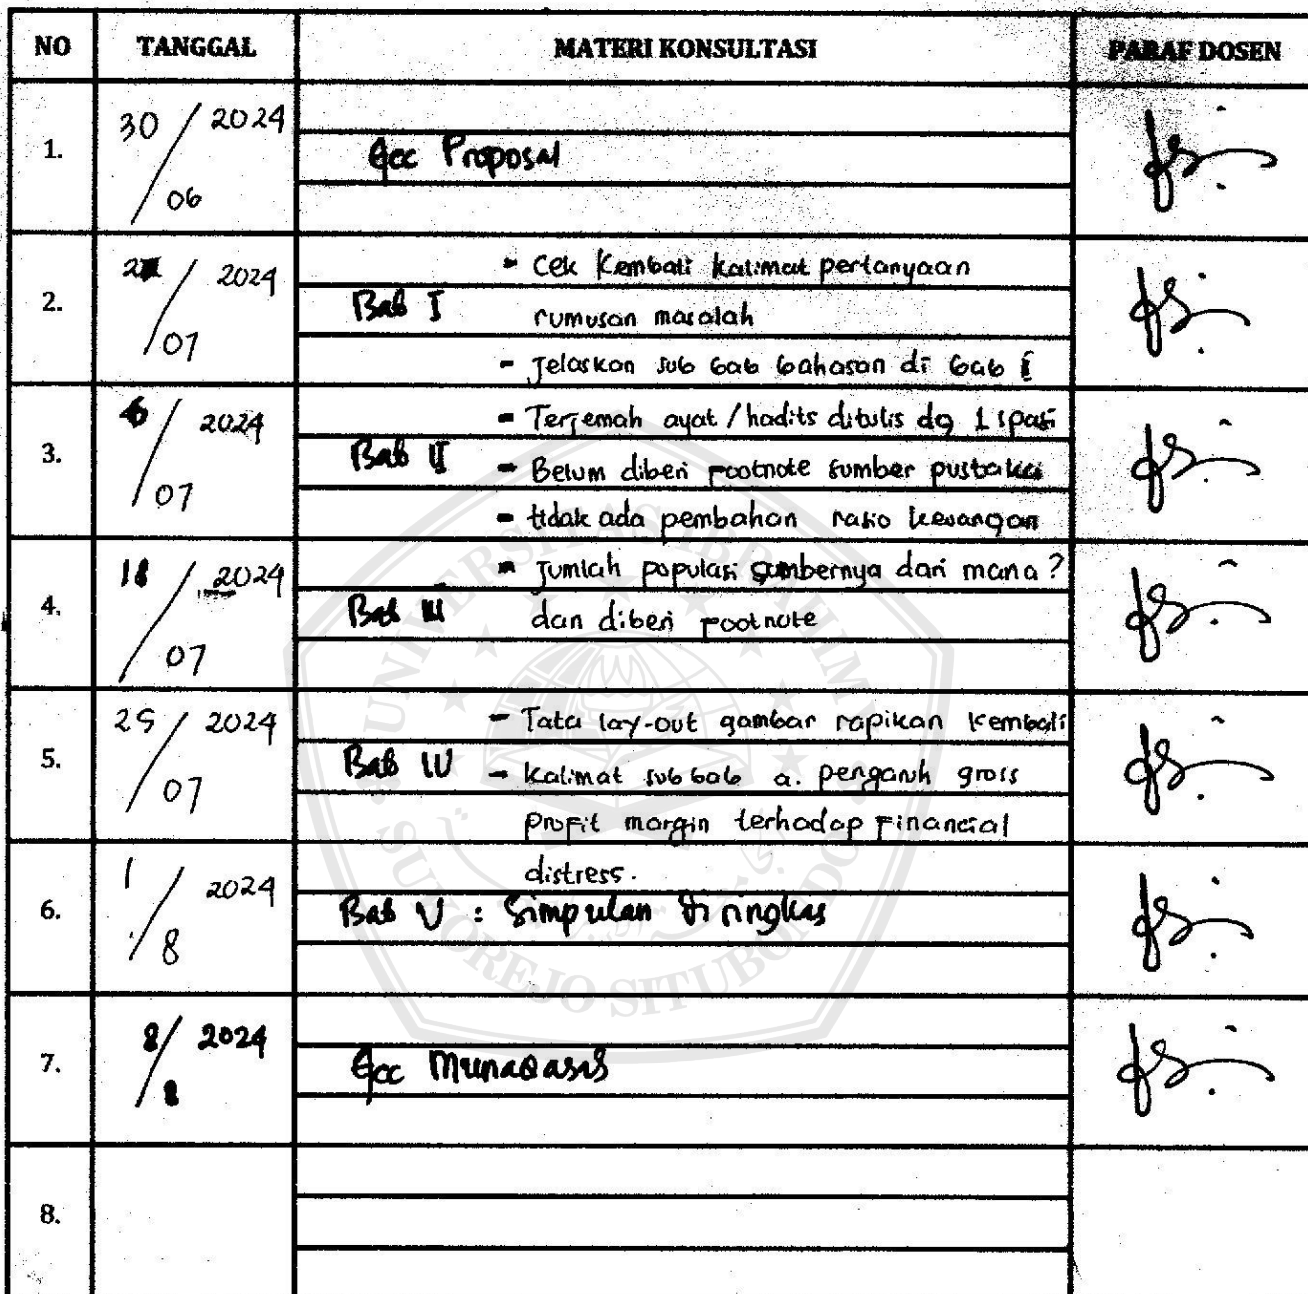 NO TANGGAL MATERI KONSULTASI PARAF DOSEN
1. 30/06 2024 Acc Proposal
2. /07 2024 Bab I - Cek Kembali kalimat pertanyaan
rumusan masalah
- Jelaskan sub bab bahasan di bab I
3. /07 2024 Bab II - Terjemah ayat/hadits ditulis dg 1 spasi
- Belum diberi footnote sumber pustaka
- tidak ada pembahan rasio keuangan
4. 18/07 2024 Bab III - Jumlah populasi sumbernya dari mana?
dan diberi footnote
5. 25/07 2024 Bab IV - Tata lay-out gambar rapikan kembali
- Kalimat sub bab a. pengaruh gross
profit margin terhadap Financial
distress.
6. 1/8 2024 Bab V : Simpulan diringkas
7. 8/8 2024 Acc Munaqasah
8.
UNIVERSITAS IBRAHIMY
SUKOREJO SITUBONDO